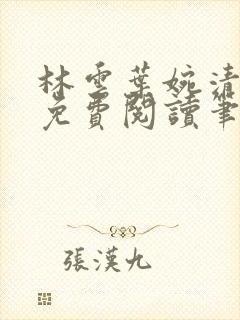 林雲葉婉清
免費閱讀筆
張漢九